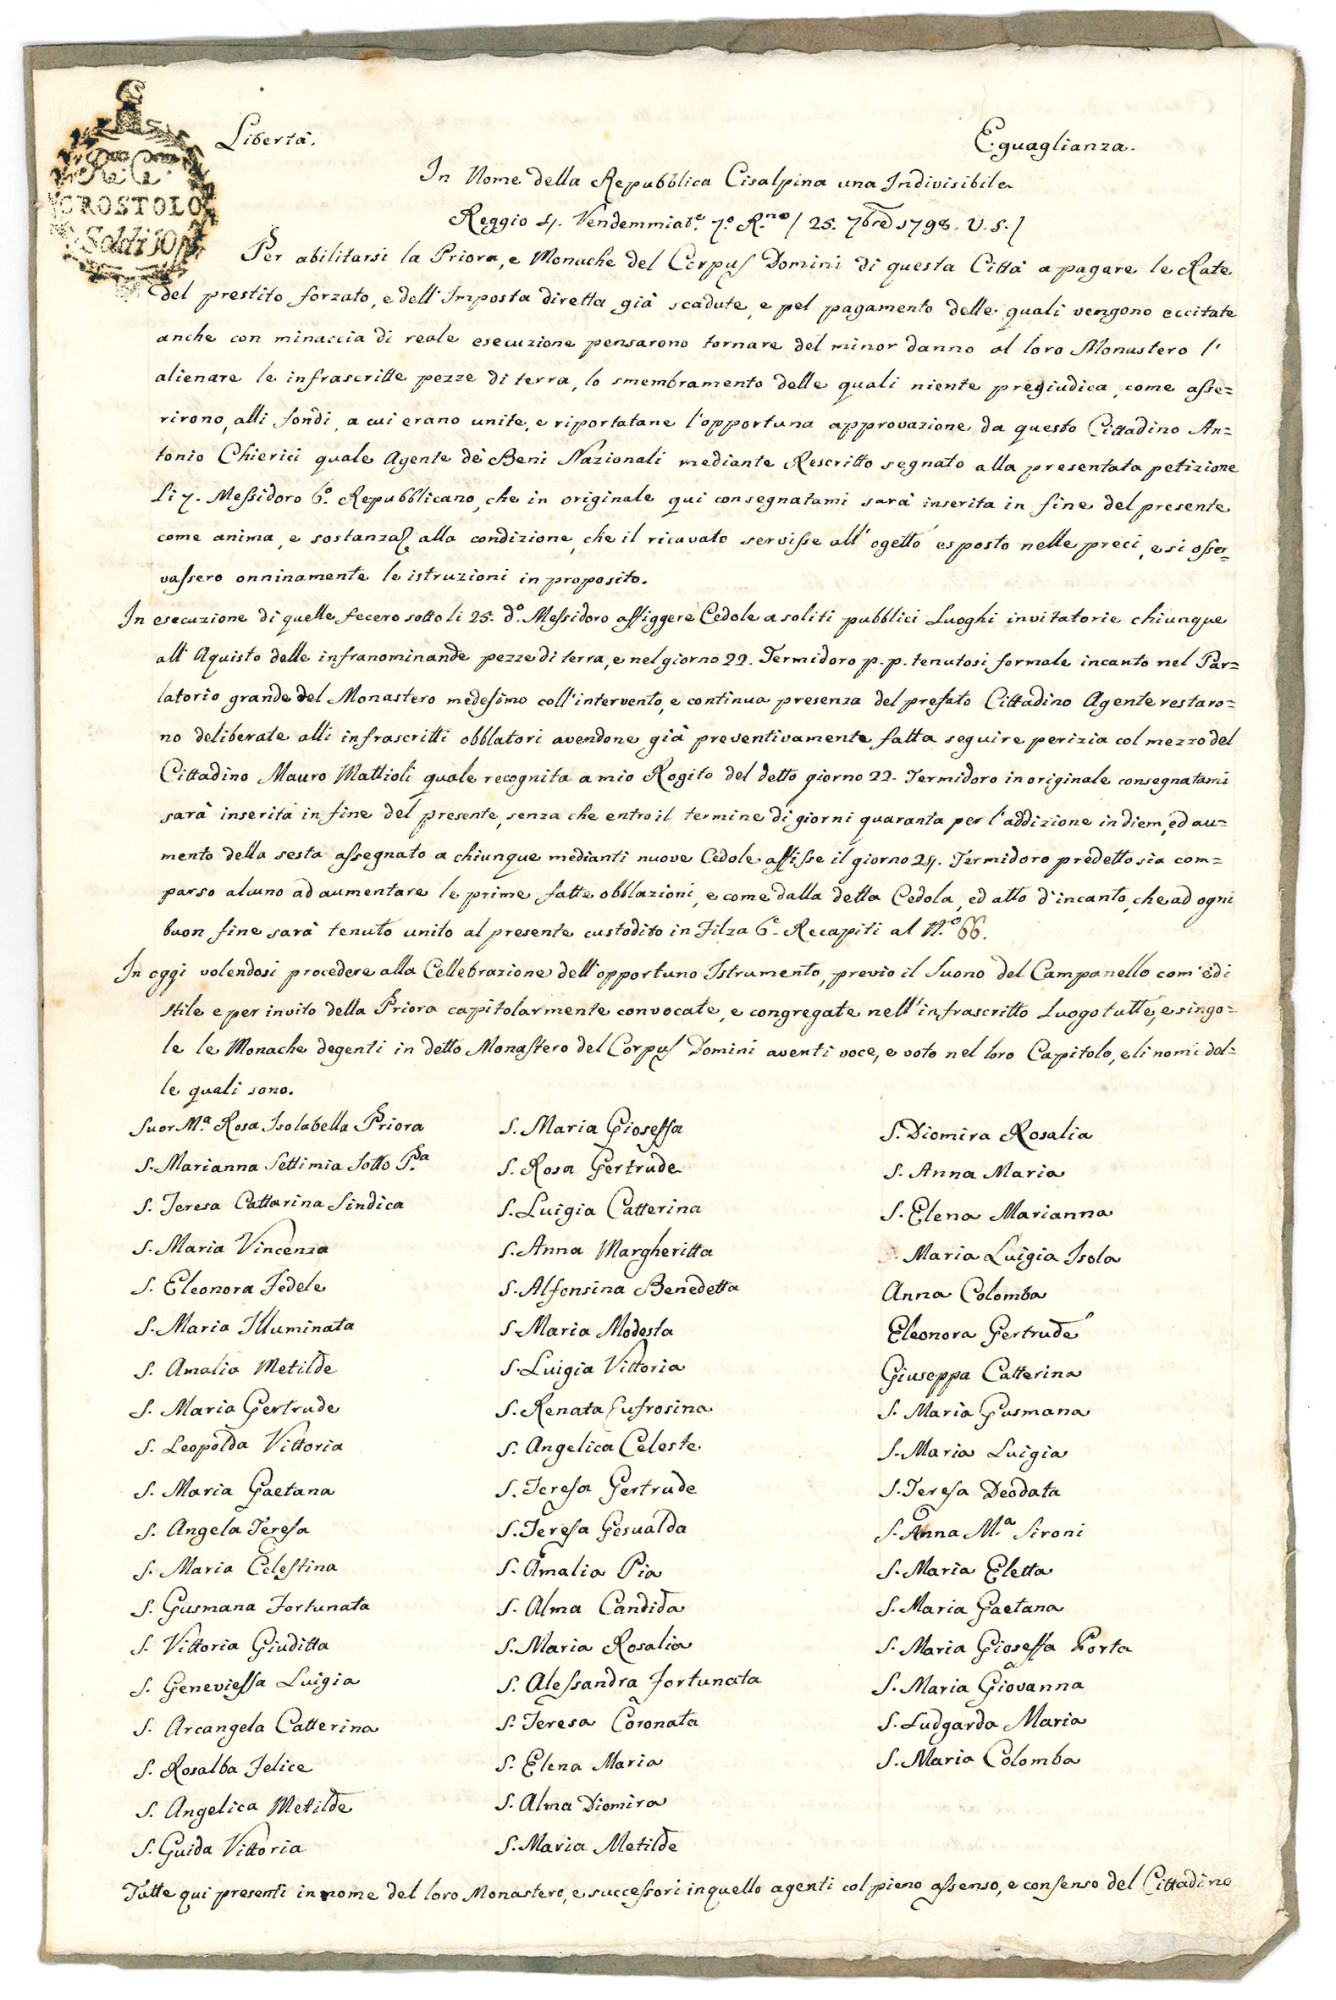 Libertà. Eguaglianza.
R. C.
CROSTOLO
Soldi 10
In Nome della Repubblica Cisalpina una Indivisibile
Reggio 4. Vendemmiat.e 7.o R.no / 25. 7bre 1798. V. S. /
Per abilitarsi la Priora, e Monache del Corpus Domini di questa Città a pagare le Rate
del prestito forzato, e dell'Imposta diretta già scadute, e pel pagamento delle quali vengono eccitate
anche con minaccia di reale esecuzione pensarono tornare del minor danno al loro Monastero l'
alienare le infrascritte pezze di terra, lo smembramento delle quali niente pregiudica, come asse=
rirono, alli fondi, a cui erano unite, e riportatane l'opportuna approvazione da questo Cittadino An=
tonio Chierici quale Agente de' Beni Nazionali mediante Rescritto segnato alla presentata petizione
li 7. Messidoro 6.o Repubblicano, che in originale qui consegnatami sarà inserita in fine del presente
come anima, e sostanza alla condizione, che il ricavato servisse all'ogetto esposto nelle preci, e si osser=
vassero onninamente le istruzioni in proposito.
In esecuzione di quelle fecero sotto li 25. d.o Messidoro affiggere Cedole a soliti pubblici Luoghi invitatorie chiunque
all'Aquisto delle infranominande pezze di terra, e nel giorno 22. Termidoro p. p. tenutosi formale incanto nel Par=
latorio grande del Monastero medesimo coll'intervento, e continua presenza del prefato Cittadino Agente restaro=
no deliberate alli infrascritti obblatori avendone già preventivamente fatta seguire perizia col mezzo del
Cittadino Mauro Mattioli quale recognita a mio Rogito del detto giorno 22. Termidoro in originale consegnatami
sarà inserita in fine del presente, senza che entro il termine di giorni quaranta per l'addizione in diem, ed au=
mento della sesta assegnato a chiunque medianti nuove Cedole affisse il giorno 24. Termidoro predetto sia com=
parso alcuno ad aumentare le prime fatte obblazioni, e come dalla detta Cedola, ed atto d'incanto, che ad ogni
buon fine sarà tenuto unito al presente custodito in Filza 6.e Recapiti al N.o 66.
In oggi volendosi procedere alla Cellebrazione dell'opportuno Istrumento, previo il Suono del Campanello com'è di
stile e per invito della Priora capitolarmente convocate, e congregate nell'infrascritto Luogo tutte, e singo=
le le Monache degenti in detto Monastero del Corpus Domini aventi voce, e voto nel loro Capitolo, e li nomi del=
le quali sono.
Suor M.a Rosa Isolabella Priora
S. Marianna Settimia Sotto P.a
S. Teresa Cattarina Sindica
S. Maria Vincenza
S. Eleonora Fedele
S. Maria Illuminata
S. Amalia Metilde
S. Maria Gertrude
S. Leopolda Vittoria
S. Maria Gaetana
S. Angela Teresa
S. Maria Celestina
S. Gusmana Fortunata
S. Vittoria Giuditta
S. Genevieffa Luigia
S. Arcangela Catterina
S. Rosalba Felice
S. Angelica Metilde
S. Guida Vittoria
S. Maria Gioseffa
S. Rosa Gertrude
S. Luigia Catterina
S. Anna Margheritta
S. Alfonsina Benedetta
S Maria Modesta
S. Luigia Vittoria
S. Renata Eufrosina
S. Angelica Celeste
S. Teresa Gertrude
S. Teresa Gesualda
S. Amalia Pia
S. Alma Candida
S. Maria Rosalia
S. Alessandra Fortunata
S. Teresa Coronata
S. Elena Maria
S. Alma Diomira
S. Maria Metilde
S. Diomira Rosalia
S. Anna Maria
S. Elena Marianna
S. Maria Luigia Isola
Anna Colomba
Eleonora Gertrude
Giuseppa Catterina
S. Maria Gusmana
S. Maria Luigia
S. Teresa Deodata
S. Anna M.a Sironi
S. Maria Eletta
S. Maria Gaetana
S. Maria Gioseffa Porta
S. Maria Giovanna
S. Ludgarda Maria
S. Maria Colomba
Tutte qui presenti in nome del loro Monastero, e successori in quello agenti col pieno assenso, e consenso del Cittadino